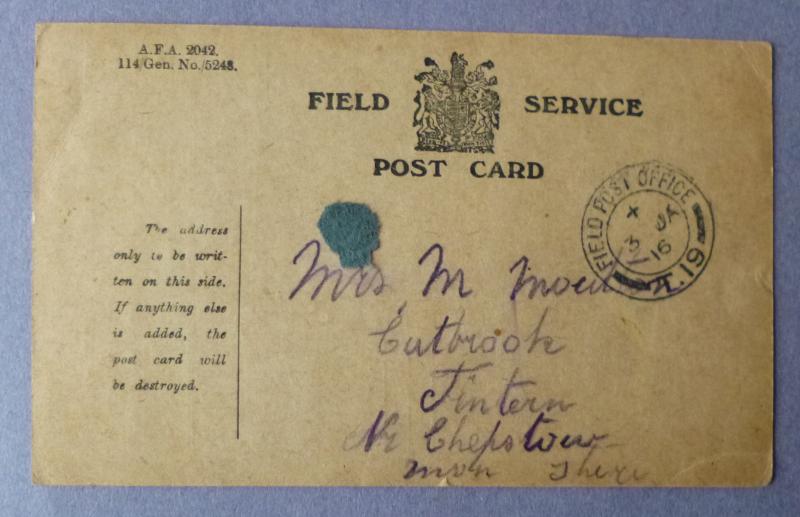 A.F.A. 2042.
114/Gen. No./5248.
FIELD SERVICE
POST CARD
FIELD POST OFFICE
X JA
3
16
A.19
The address
only to be writ-
ten on this side.
If anything else
is added, the
post card will
be destroyed.
Mrs M
Catbrook
Tintern
Nr Chepstow
mon shire